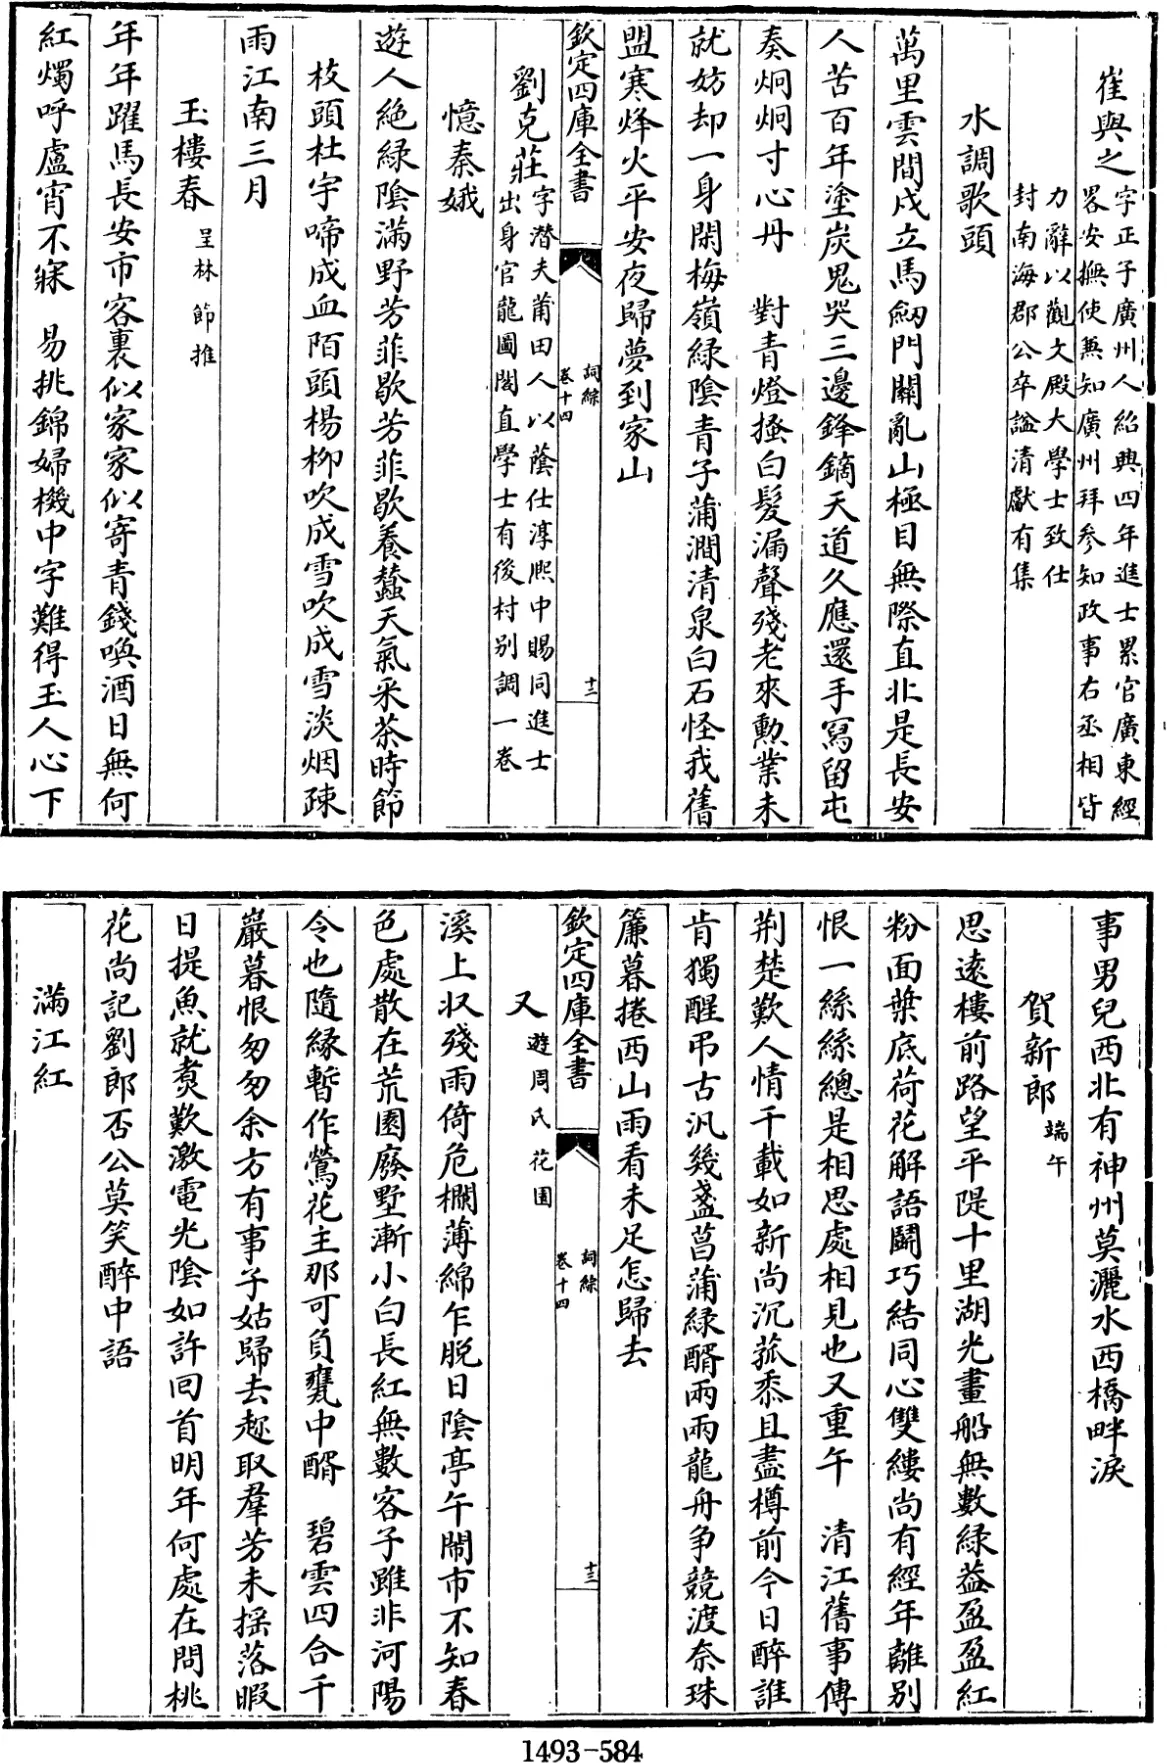 崔與之字正子廣州人紹興四年進士累官廣東經
畧安撫使兼知廣州拜參知政事右丞相皆
力辭以觀文殿大學士致仕
封南海郡公卒諡清獻有集
水調歌頭
萬里雲間戍立馬劒門關亂山極目無際直北是長安
人苦百年塗炭鬼哭三邊鋒鏑天道久應還手寫留屯
奏炯炯寸心丹　對青燈搔白髮漏聲殘老來勲業未
就妨却一身閑梅嶺綠陰青子蒲澗清泉白石怪我舊
盟寒烽火平安夜歸夢到家山
欽定四庫全書
詞綜
卷十四
十二
劉克莊字潛夫莆田人以蔭仕淳熙中賜同進士
出身官龍圖閣直學士有後村別調一卷
憶秦娥
遊人絶綠陰滿野芳菲歇芳菲歇養蠶天氣采茶時節
枝頭杜宇啼成血陌頭楊柳吹成雪吹成雪淡烟疎
雨江南三月
玉樓春呈林節推
年年躍馬長安市客裏似家家似寄青錢喚酒日無何
紅燭呼盧宵不寐　易挑錦婦機中字難得玉人心下
事男兒西北有神州莫灑水西橋畔淚
賀新郎端午
思遠樓前路望平隄十里湖光畫船無數綠葢盈盈紅
粉面葉底荷花解語鬭巧結同心雙縷尚有經年離別
恨一絲絲總是相思處相見也又重午　清江舊事傳
荆楚歎人情千載如新尚沉菰黍且盡樽前今日醉誰
肯獨醒弔古汎幾盞菖蒲綠醑兩兩龍舟争競渡奈珠
簾暮捲西山雨看未足怎歸去
欽定四庫全書
詞綜
卷十四
十三
又遊周氏花園
溪上収殘雨倚危欄薄綿乍脱日陰亭午閙市不知春
色處散在荒園廢墅漸小白長紅無數客子雖非河陽
令也隨緣暫作鶯花主那可負甕中醑　碧雲四合千
巖暮恨匆匆余方有事子姑歸去趂取羣芳未揺落暇
日提魚就煑歎激電光陰如許回首明年何處在問桃
花尚記劉郎否公莫笑醉中語
滿江紅
1493-584